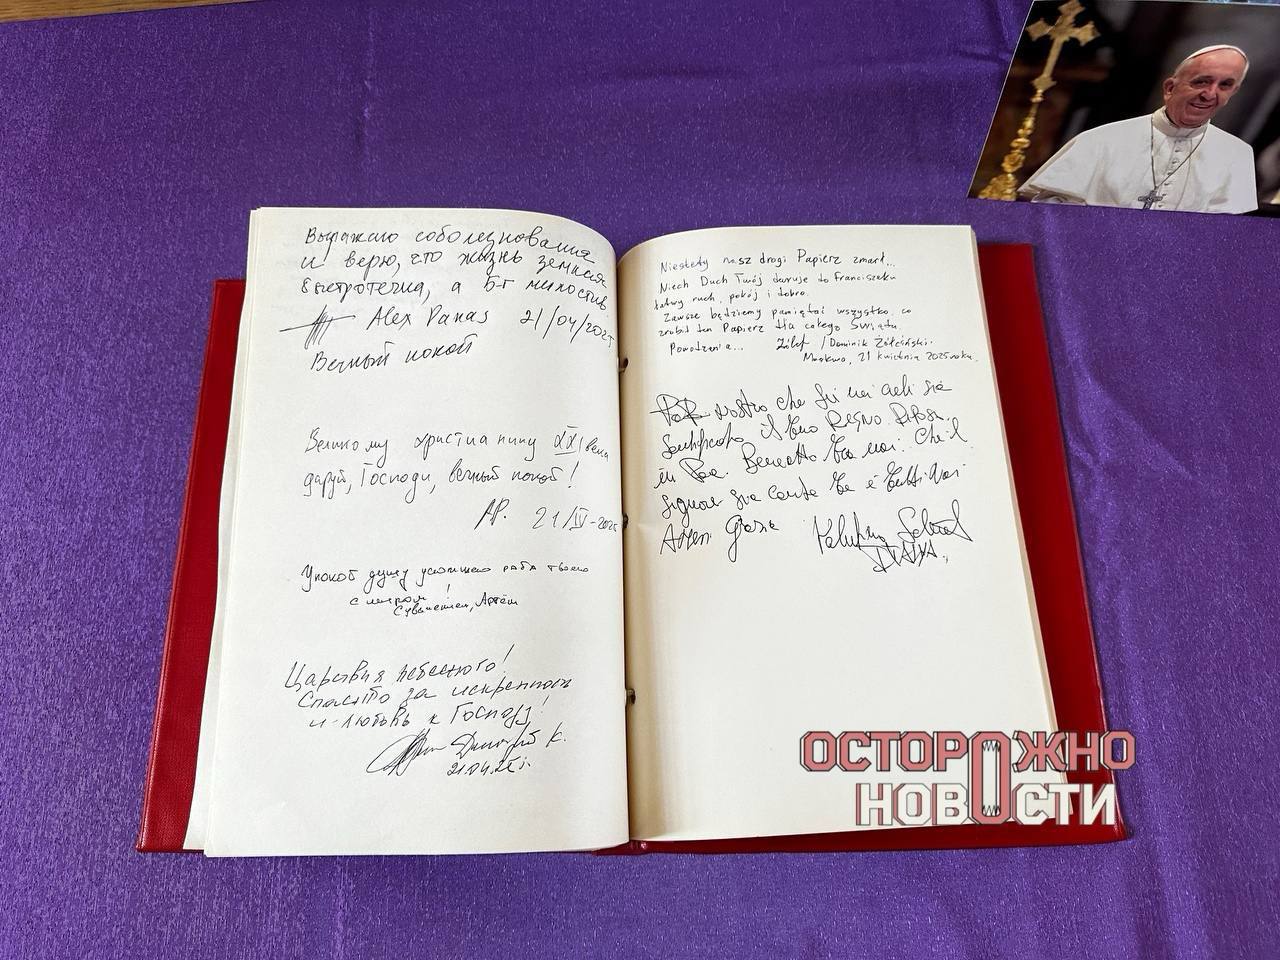 Выражаю соболезнования
и верю, что жизнь земная
быстротечна, а Б-г милостив.
Alex Panas 21/04/2025
Вечный покой
Великому христианину XXI века
даруй, Господи, вечный покой!
АР. 21/IV-2025
Упокой душу усопшего раба твоего
с миром!
Артём
Царствия небесного!
Спасибо за искренность
и любовь к Господу!
Дмитрий К.
21.04.25г.
Niestety nasz drogi Papierz zmarł...
Niech Duch Twój daruje do Franciszku
łatwy ruch, pokój i dobro.
Zawsze będziemy pamiętać wszystko, co
zrobił ten Papierz dla całego Świątu.
Powodzenia... Józef /Dominik Żółciński.
Moskwa, 21 kwietnia 2025 roku.
nostro che sei nei cieli sia
Santificato il tuo Regno. Riposa
in Pace. Benedetto tra noi. Che il
Signore sia con te e tutti noi
Amen Grazie
ОСТОРОЖНО
НОВОСТИ